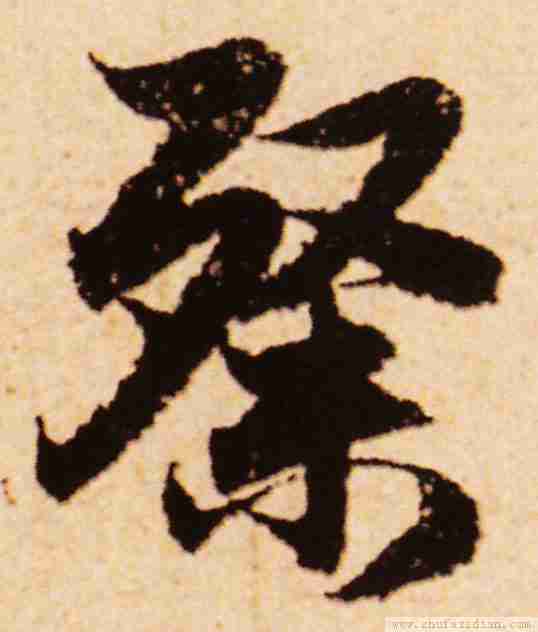 粲
www.shufazidian.com